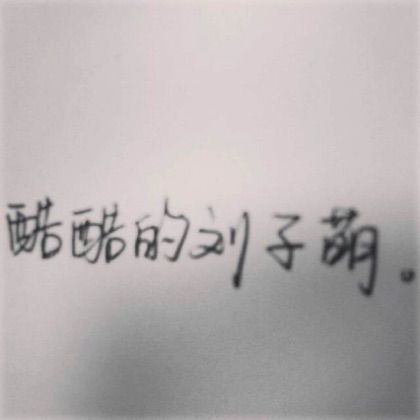 酷酷的刘子萌。